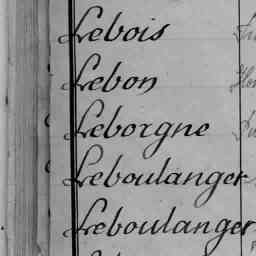 Lebois
Lebon
Leborgne
Leboulanger
Leboulanger